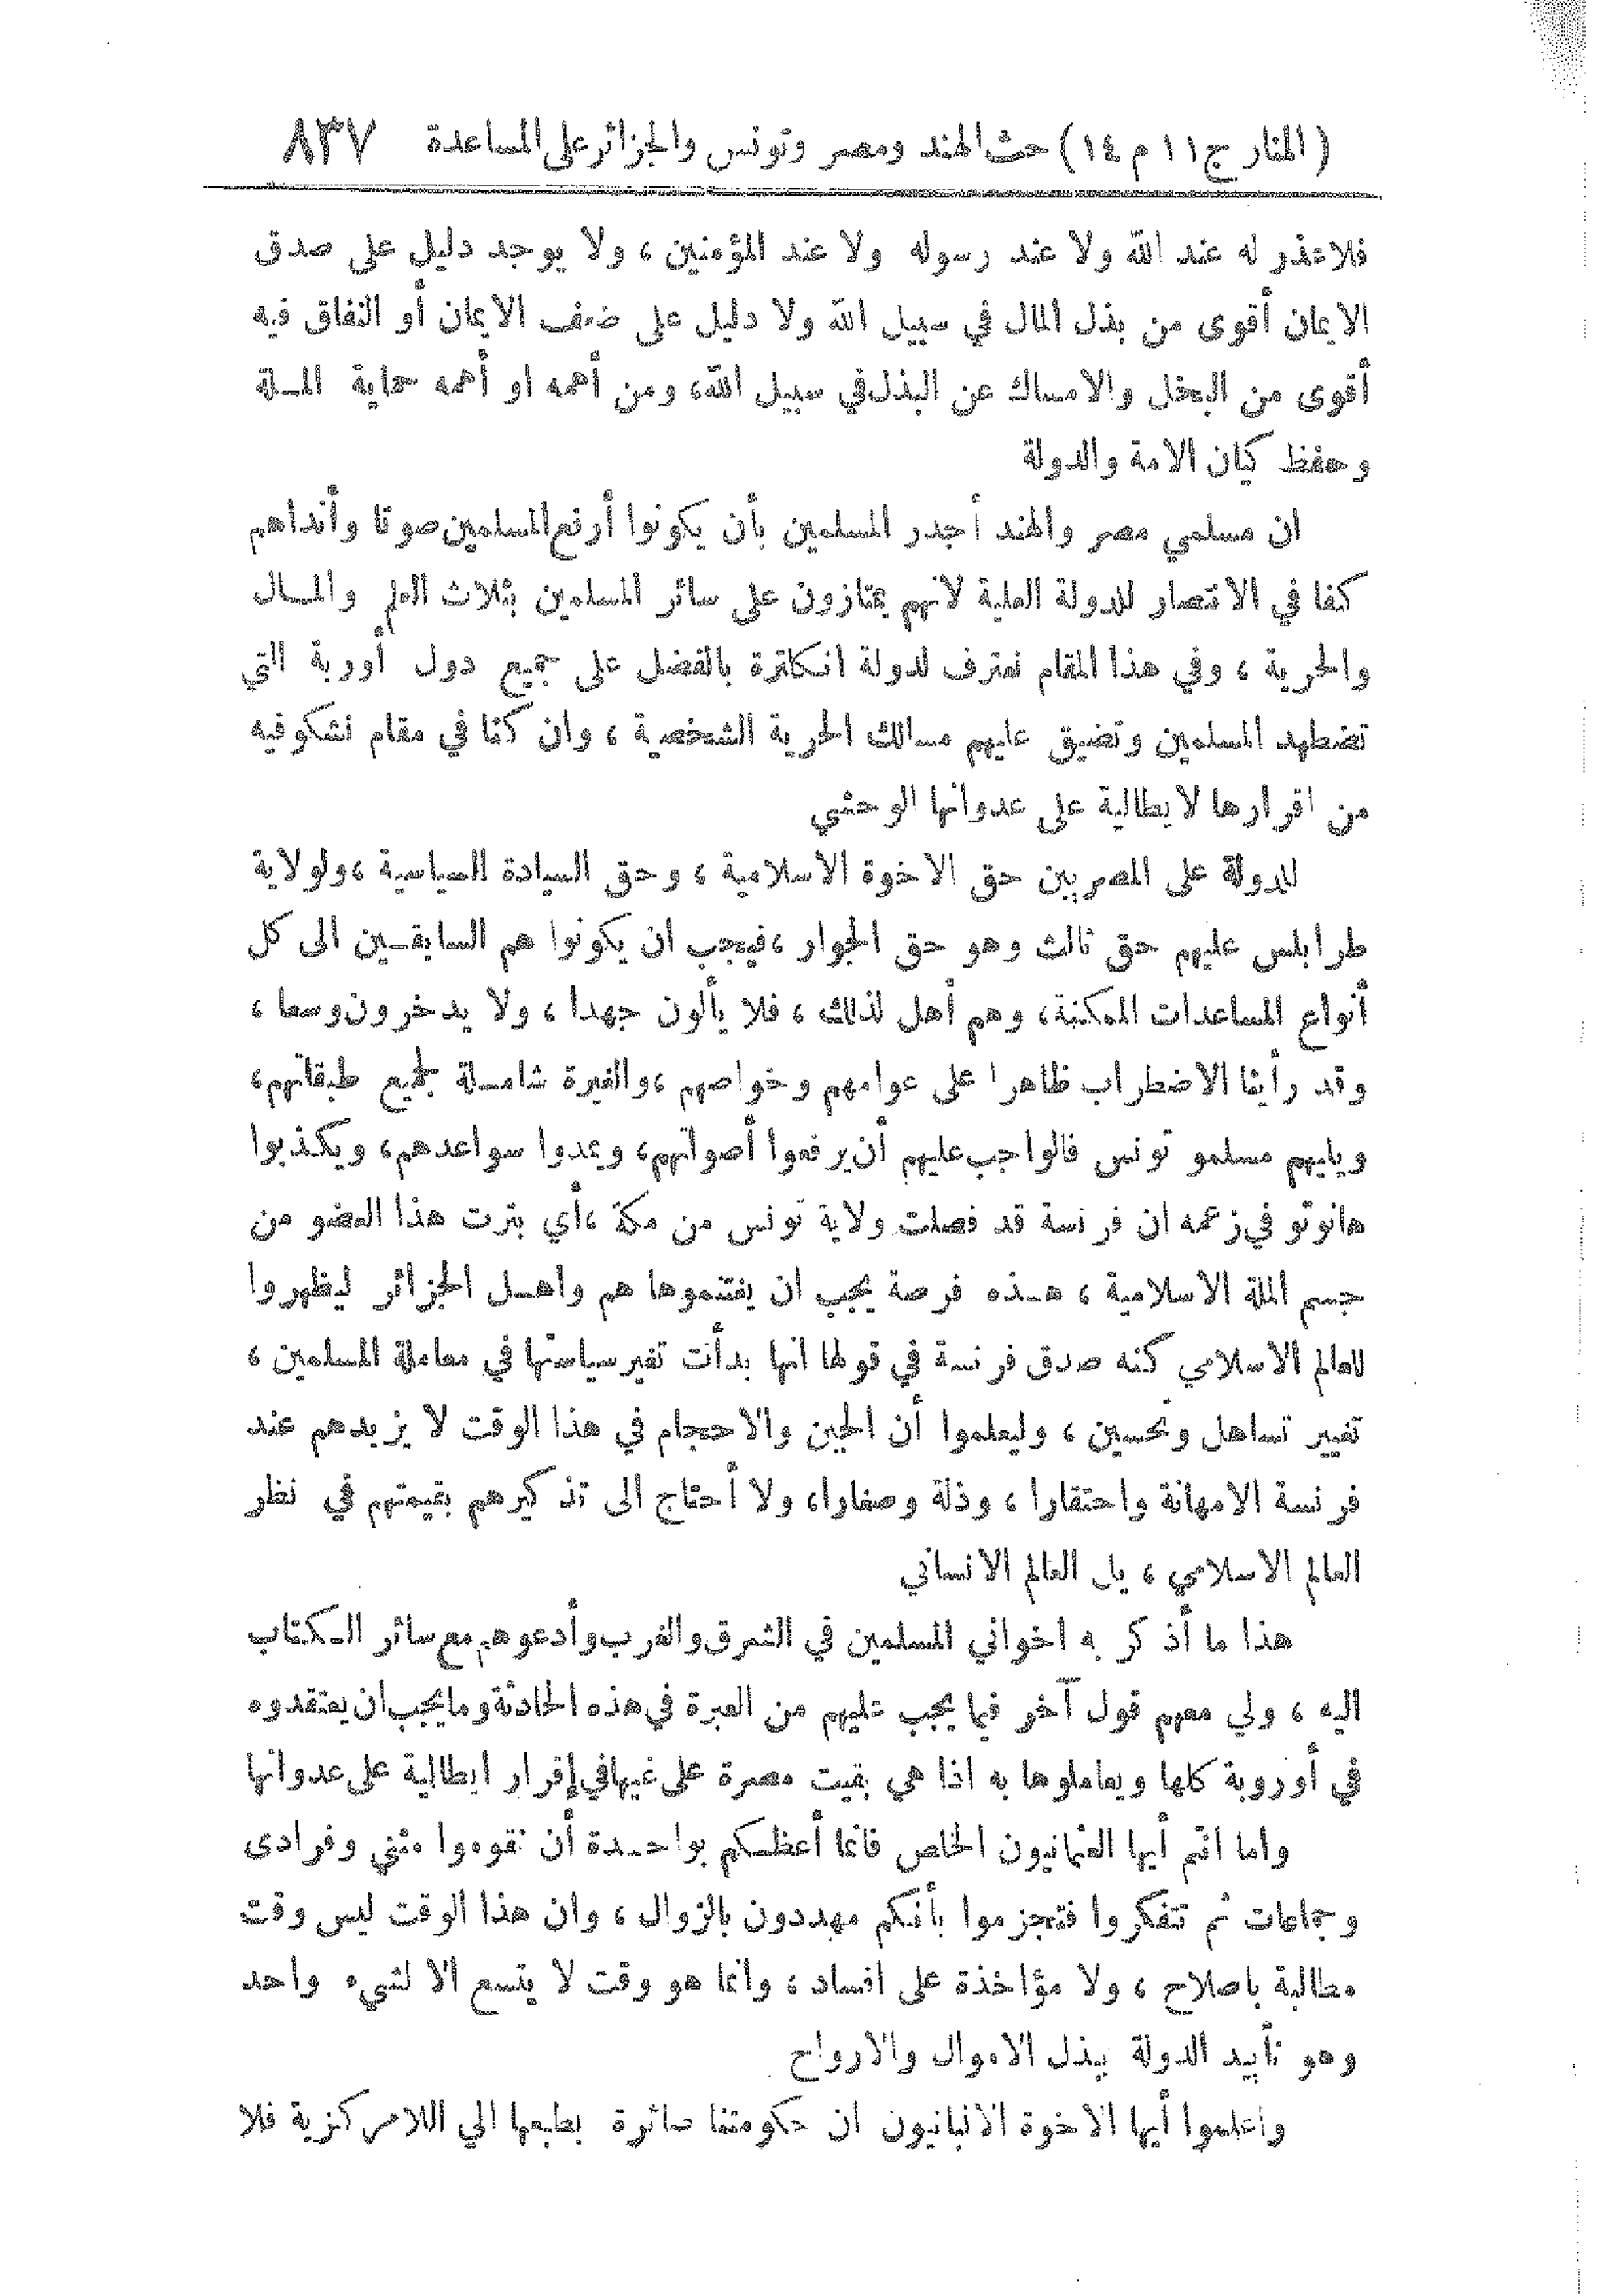 (المنار ج١١ م ١٤) حث الهند ومصر وتونس والجزائر على المساعدة ٨٣٧
فلا عذر له عند الله ولا عند رسوله ولا عند المؤمنين ، ولا يوجد دليل على صدق
الايمان أقوى من بذل المال في سبيل الله ولا دليل على ضعف الايمان أو النفاق فيه
أقوى من البخل والامساك عن البذل في سبيل الله، ومن أهمه او أهمه حماية الملة
وحفظ كيان الامة والدولة
ان مسلمي مصر والهند أجدر المسلمين بأن يكونوا أرفع المسلمين صوتا وأنداهم
كفا في الانتصار للدولة العلية لانهم يمتازون على سائر المسلمين بثلاث العلم والمال
والحرية ، وفي هذا المقام نعترف لدولة انكلترة بالفضل على جميع دول أوربة التي
تضطهد المسلمين وتضيق عليهم مسالك الحرية الشخصية ، وان كنا في مقام نشكو فيه
من اقرارها لايطالية على عدوانها الوحشي
للدولة على المصريين حق الاخوة الاسلامية ، وحق السيادة السياسية ، ولولاية
طرابلس عليهم حق ثالث وهو حق الجوار ، فيجب ان يكونوا هم السابقين الى كل
أنواع المساعدات الممكنة، وهم أهل لذلك ، فلا يألون جهدا ، ولا يدخرون وسعا ،
وقد رأينا الاضطراب ظاهرا على عوامهم وخواصهم ، والغيرة شاملة لجميع طبقاتهم،
ويليهم مسلمو تونس فالواجب عليهم أن يرفعوا أصواتهم، ويمدوا سواعدهم، ويكذبوا
هانوتو في زعمه ان فرنسة قد فصلت ولاية تونس من مكة ، أي بترت هذا العضو من
جسم الملة الاسلامية ، هذه فرصة يجب ان يغتنموها هم واهل الجزائر ليظهروا
للعالم الاسلامي كنه صدق فرنسة في قولها انها بدأت تغير سياستها في معاملة المسلمين ،
تغيير تساهل وتحسين ، وليعلموا أن الجبن والاحجام في هذا الوقت لا يزيدهم عند
فرنسة الا مهانة واحتقارا ، وذلة وصغارا، ولا أحتاج الى تذكيرهم بقيمتهم في نظر
العالم الاسلامي ، بل العالم الانساني
هذا ما أذكر به اخواني المسلمين في الشرق والغرب وأدعوهم مع سائر الكتاب
اليه ، ولي معهم قول آخر فيما يجب عليهم من العبرة في هذه الحادثة وما يجب ان يعتقدوه
في أوروبة كلها ويعاملوها به اذا هي بقيت مصرة على غيها في إقرار ايطالية على عدوانها
واما انتم أيها العثمانيون الخاص فانما أعظكم بواحدة أن تقوموا مثنى وفرادى
وجماعات ثم تتفكروا فتجزموا بأنكم مهددون بالزوال ، وان هذا الوقت ليس وقت
مطالبة باصلاح ، ولا مؤاخذة على افساد ، وانما هو وقت لا يتسع الا لشيء واحد
وهو تأييد الدولة ببذل الاموال والارواح
واعلموا أيها الاخوة الالبانيون ان حكومتنا صائرة بطبعها الي اللامركزية فلا